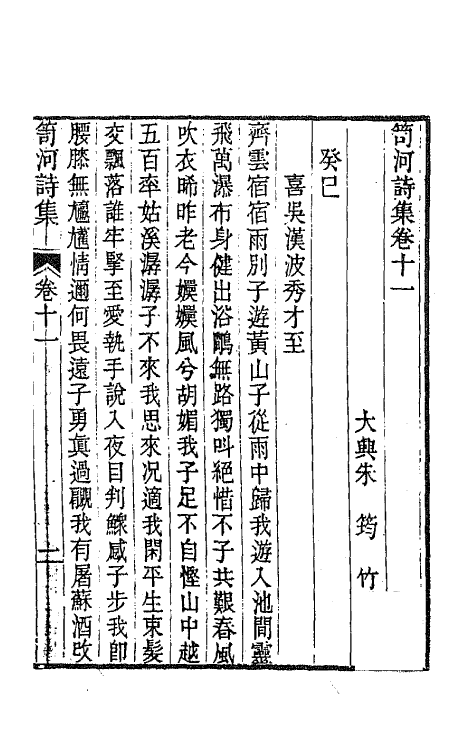 笥河詩集卷十一
大興朱 筠 竹
癸巳
喜吳漢波秀才至
齊雲宿宿雨別子遊黃山子從雨中歸我遊入池間靈
飛萬瀑布身健出浴鷳無路獨叫絕惜不子共艱春風
吹衣晞昨老今嬩嬩風兮胡媚我子足不自慳山中越
五百牽姑溪潺潺子不來我思來况適我閑平生束髮
交飄落誰牢掔至愛執手說入夜目判鰥咸子步我卽
腰膝無尵尵情邇何畏遠子勇眞過瞯我有屠蘇酒攺
笥河詩集
卷十一
一